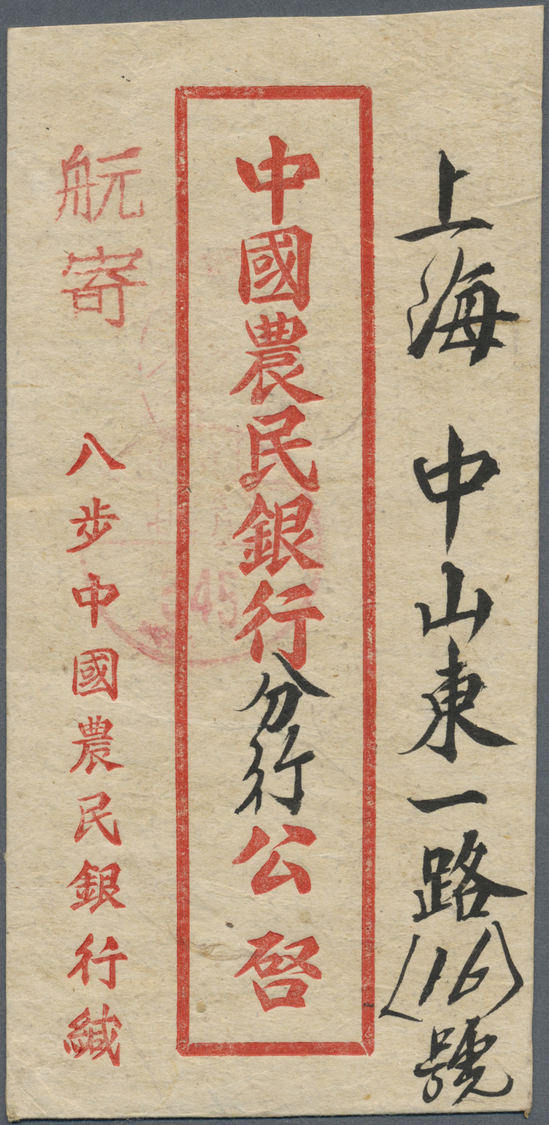 上海 中山東一路(16)號
中國農民銀行分行公啓
航寄
八步中國農民銀行緘
345